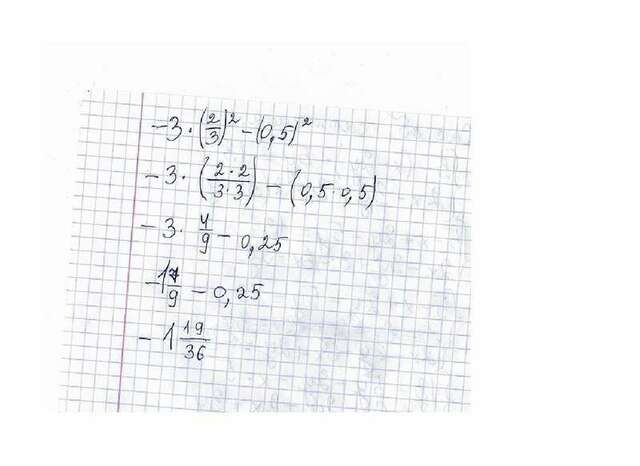 -3 · (2/3)² - (0,5)²
-3 · (2·2/3·3) - (0,5·0,5)
-3 · 4/9 - 0,25
- 0,25
-1 19/36